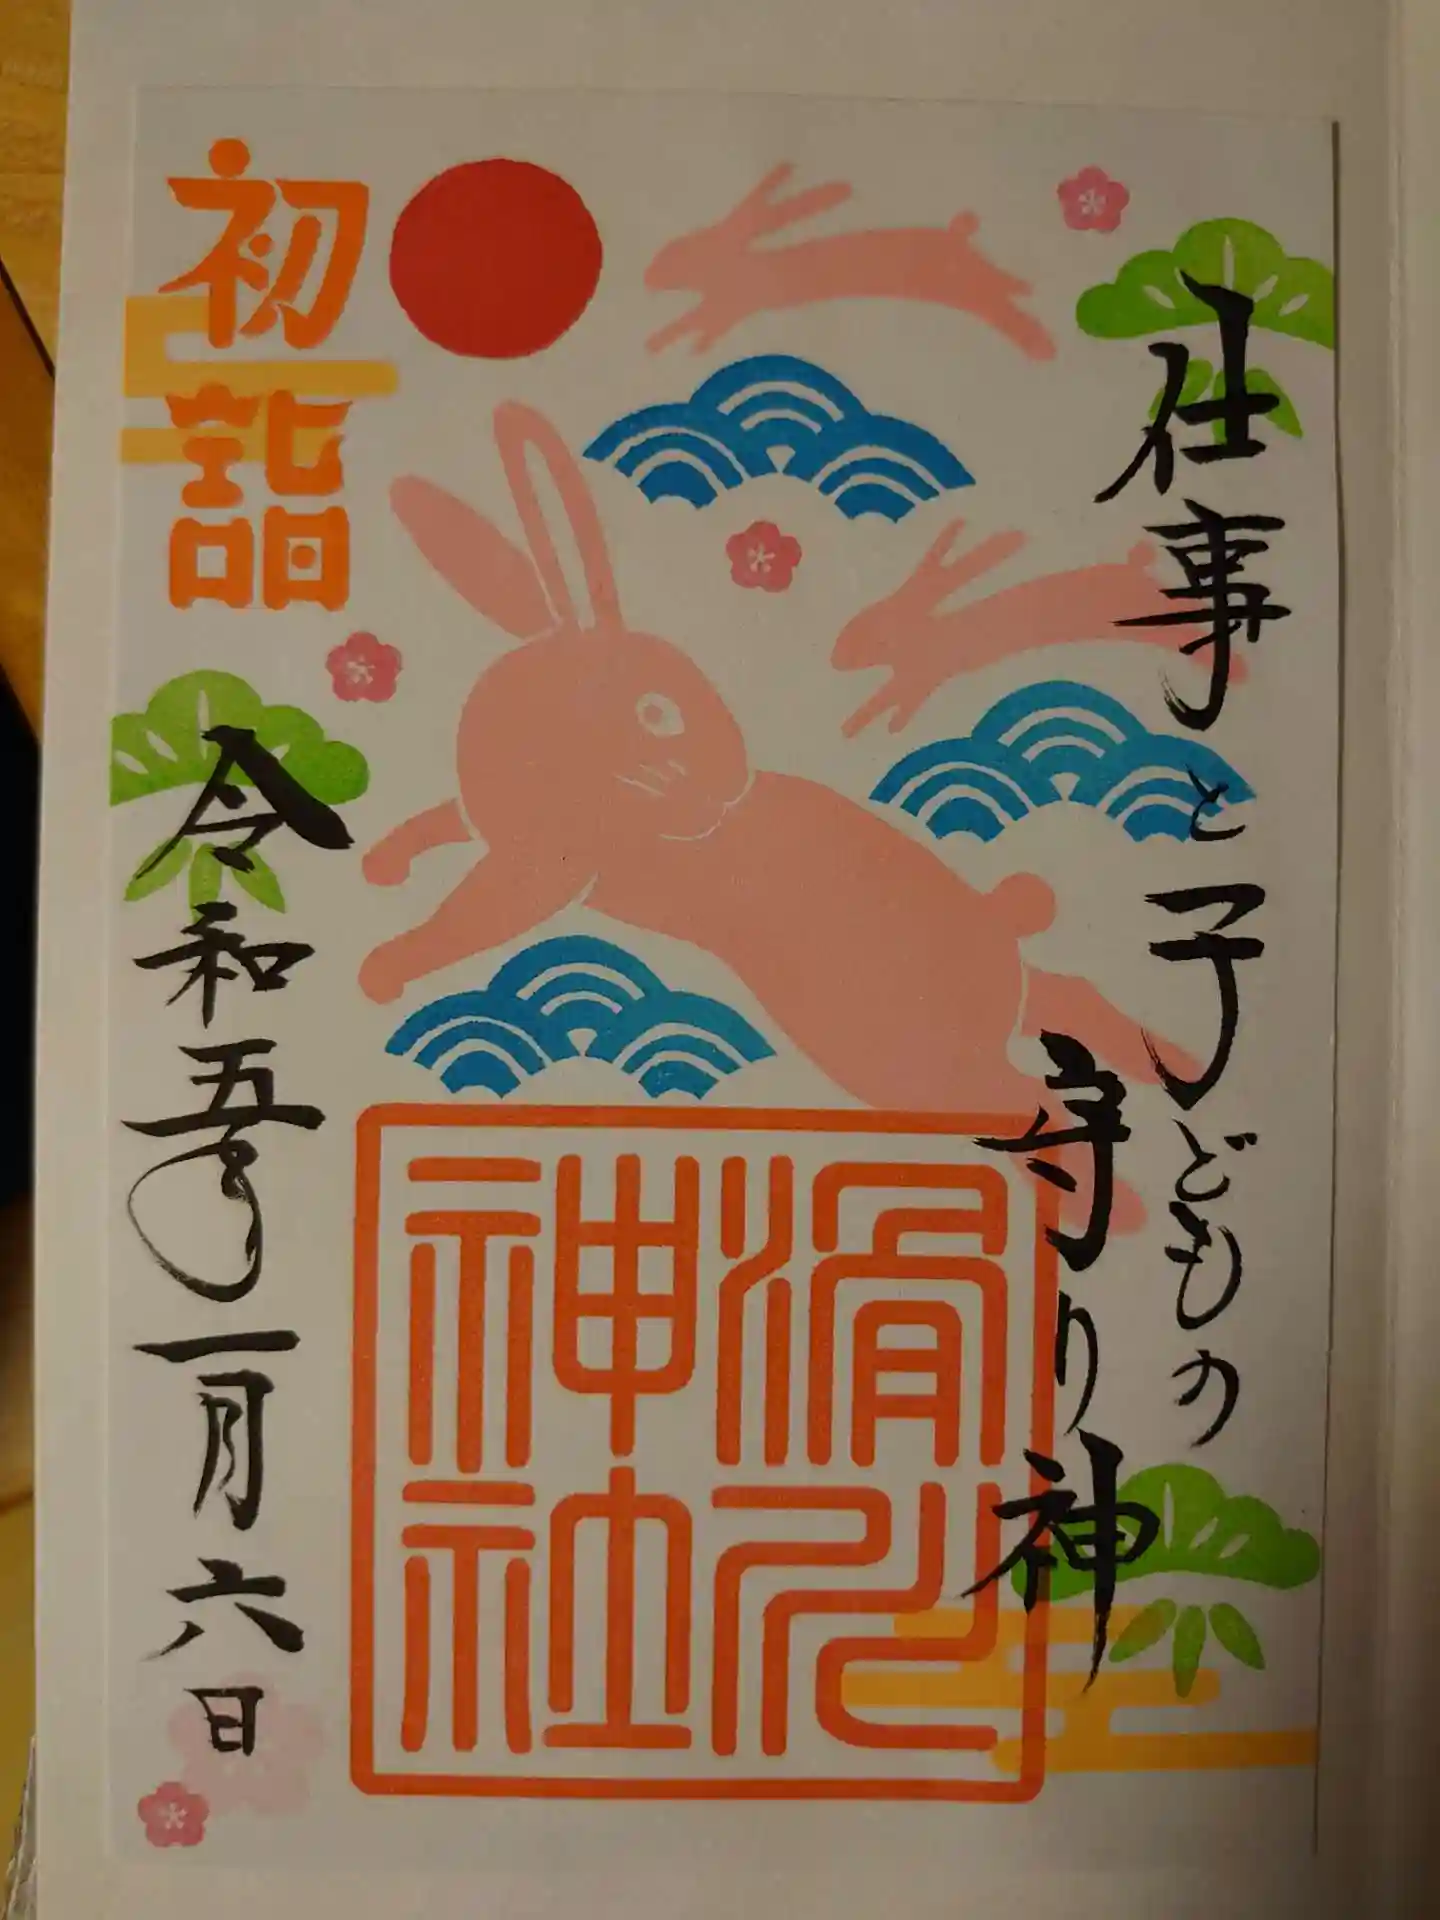 仕事と子どもの
守り神
滑川神社
初詣
令和五年一月六日